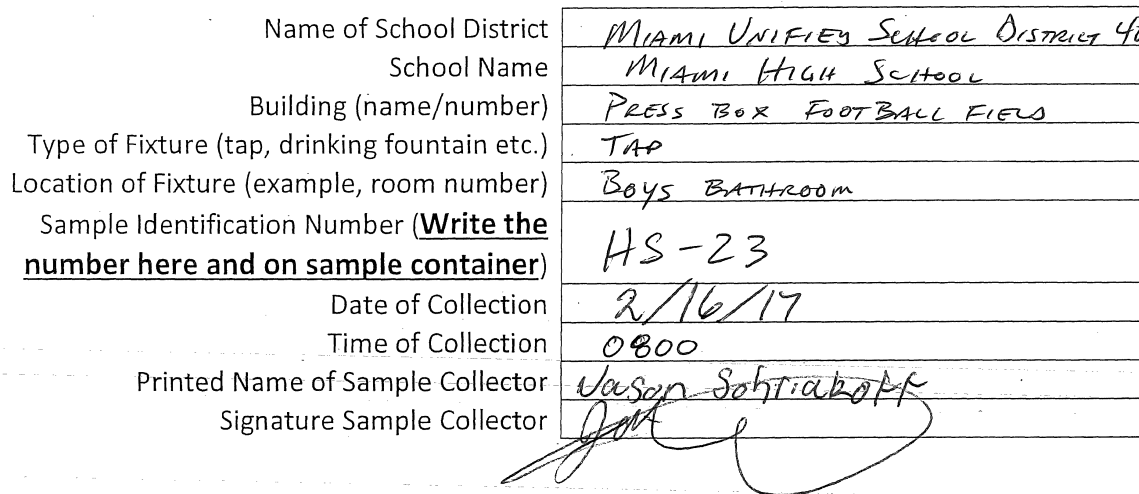 Name of School District MIAMI UNIFIED SCHOOL DISTRICT 40
School Name MIAMI HIGH SCHOOL
Building (name/number) PRESS BOX FOOTBALL FIELD
Type of Fixture (tap, drinking fountain etc.) TAP
Location of Fixture (example, room number) BOYS BATHROOM
Sample Identification Number (Write the
number here and on sample container) HS-23
Date of Collection 2/16/17
Time of Collection 0800
Printed Name of Sample Collector Jason
Signature Sample Collector